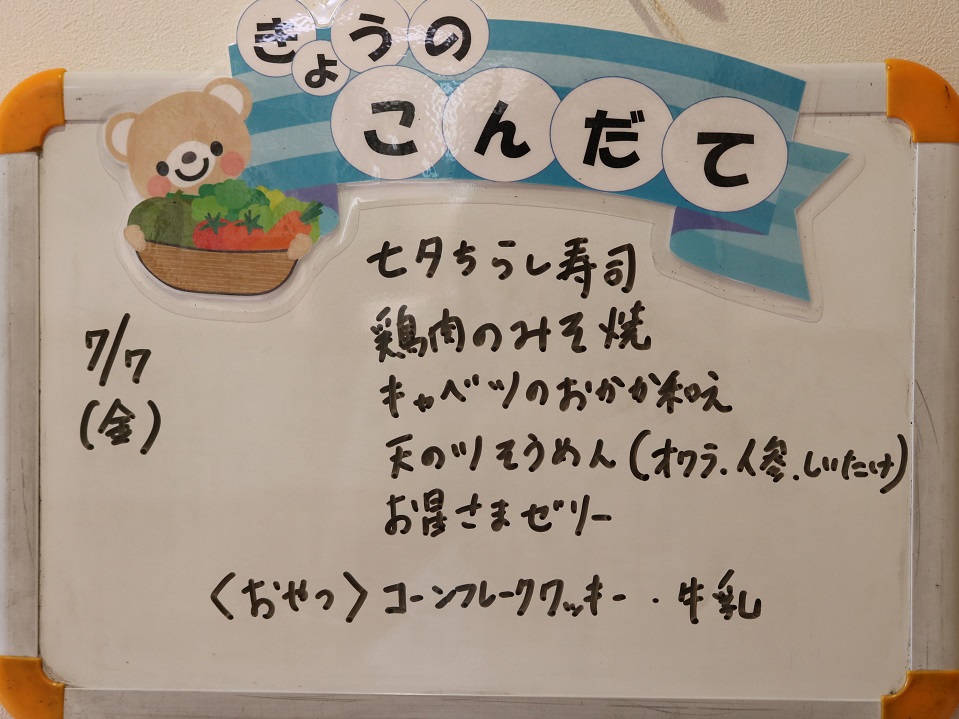 きょうの
こんだて
七夕ちらし寿司
7/7
鶏肉のみそ焼
キャベツのおかか和え
(金)
天の川そうめん(オクラ.人参.しいたけ)
お星さまゼリー
〈おやつ〉コーンフレーククッキー・牛乳